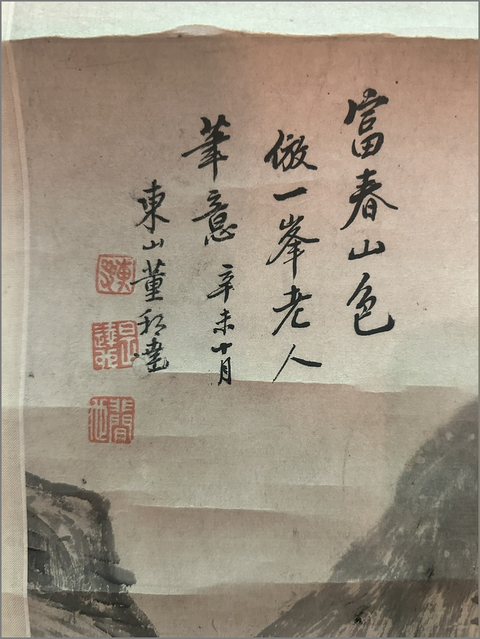 富春山色
倣一峯老人
筆意 辛未十月
東山董邦達